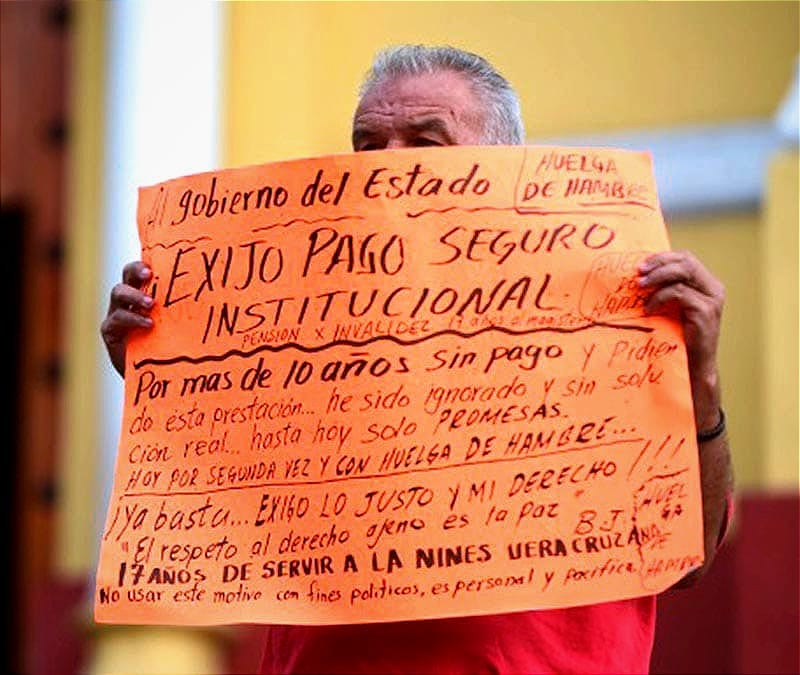 Al gobierno del Estado
HUELGA
DE HAMBRE
¡EXIJO PAGO SEGURO
INSTITUCIONAL.
PENSION X INVALIDEZ 17 años
HUELGA
DE
HAMBRE
Por mas de 10 años sin pago y Pidien
do esta prestación... he sido ignorado y sin solu
ción real... hasta hoy solo PROMESAS.
HOY POR SEGUNDA VEZ Y CON HUELGA DE HAMBRE...
¡Ya basta... EXIGO LO JUSTO Y MI DERECHO!!!
"El respeto al derecho ajeno es la Paz" B.J.
17 AÑOS DE SERVIR A LA NINES VERACRUZANA
No usar este motivo con fines politicos, es personal y pacifica.
HUEL
GA
DE
HAMBRE